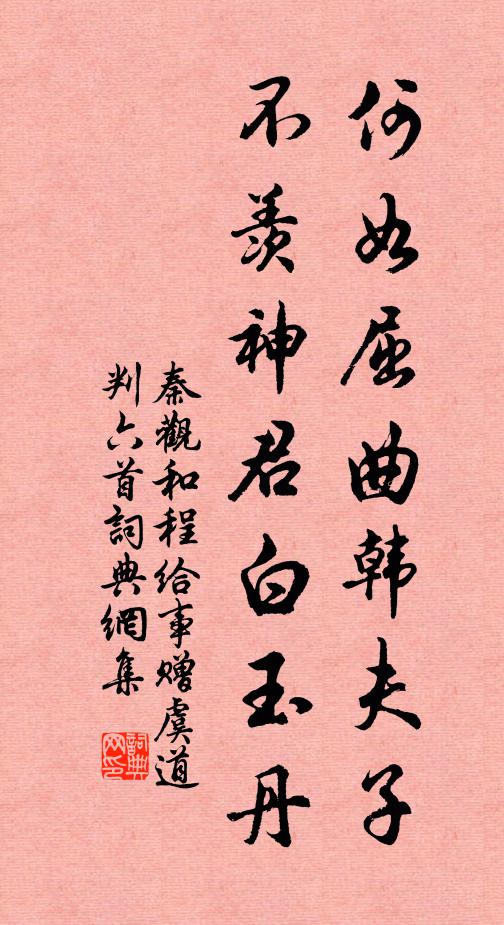 何如屈曲韩夫子
不羨神君白玉丹
秦觀和程给事赠虞道
判六首詞典網集
詞典
网印